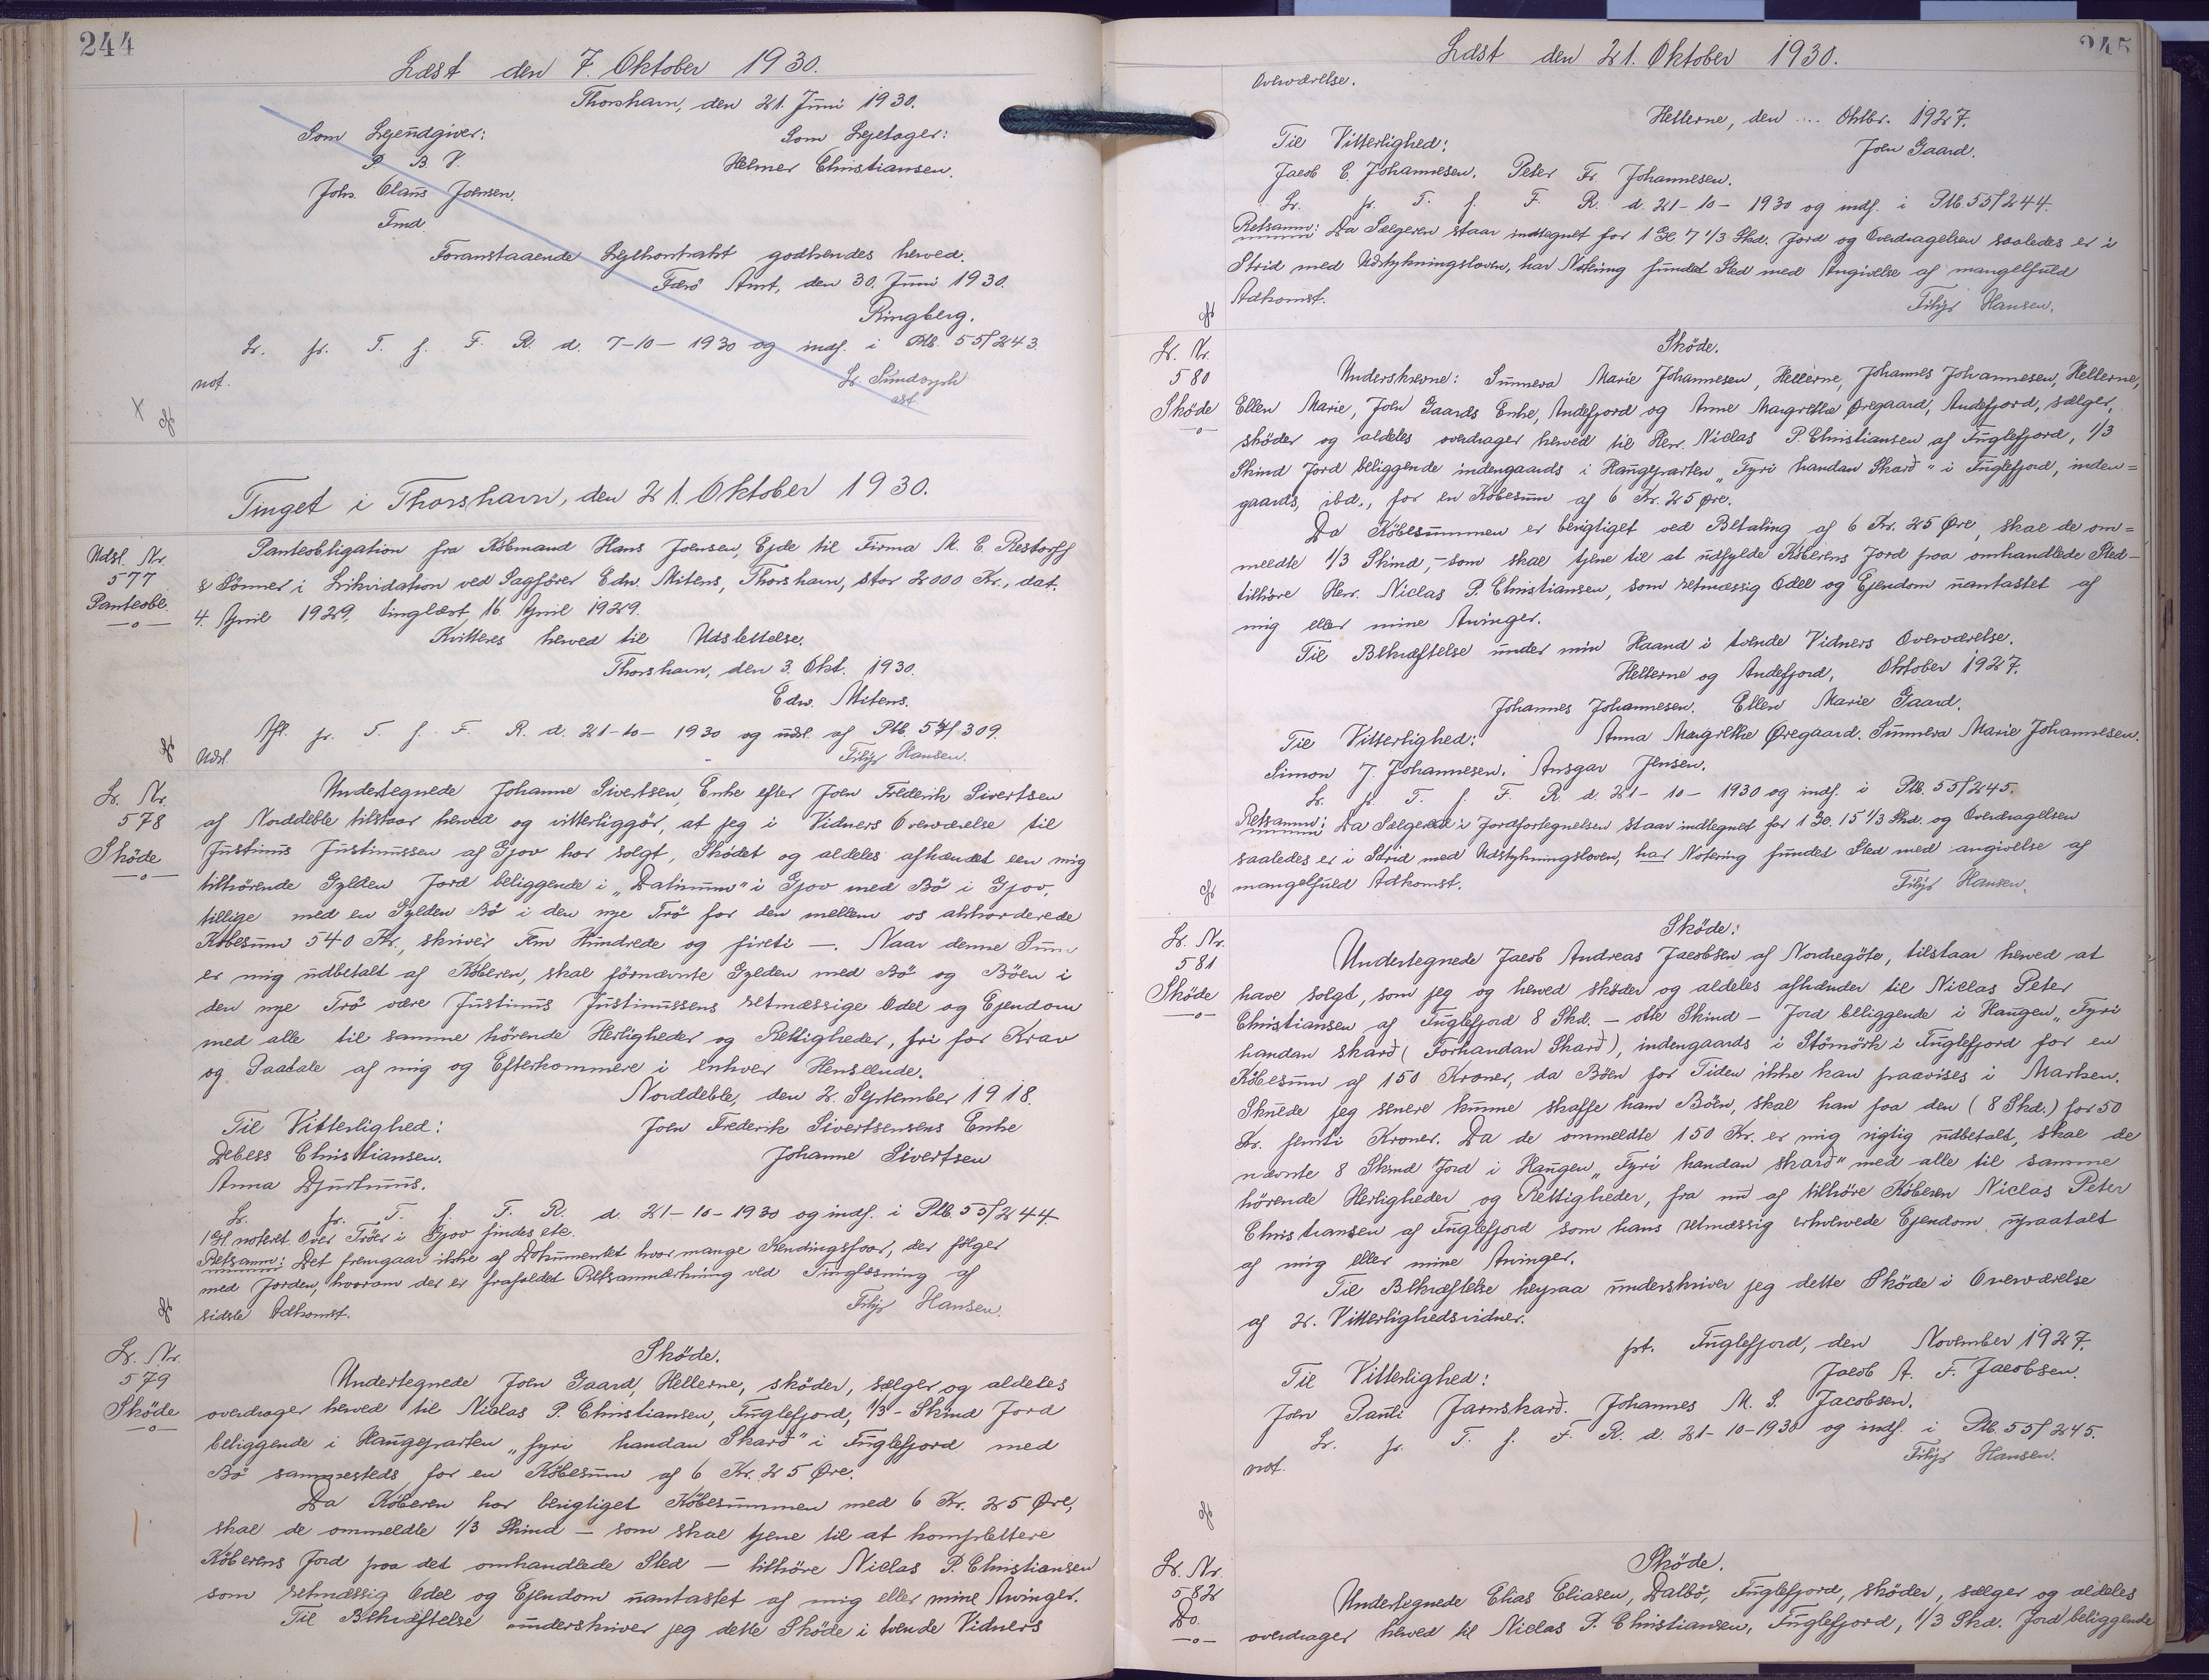 244
Læst den 7. Oktober 1930.
Thorshavn, den 21. Juni 1930.
Som Lejeudgiver: Som Lejetager:
P. B. V. Helmer Christiansen.
Johs. Olaus Joensen.
Fmd.
Foranstaaende Lejekontrakt godkendes herved.
Færø Amt, den 30. Juni 1930.
Ringberg.
Lr. fr. T. f. F. R. d. 7-10-1930 og indf. i Ptb. 55/243.
not. Lr. Sundorph
ast
Tinget i Thorshavn, den 21. Oktober 1930.
Udsl. Nr. 577 Panteobl.
Panteobligation fra Købmand Hans Joensen, Ejde til Firma M. C. Restorff
& Sönner i Likvidation ved Sagfører Edw. Mitens, Thorshavn, stor 2000 Kr., dat.
4. April 1929, tinglæst 16. April 1929.
Kvitteres herved til Udslettelse.
Thorshavn, den 3. Okt. 1930.
Edw. Mitens.
Afl. fr. T. f. F. R. d. 21-10-1930 og udsl. af Ptb. 54/309.
Udsl. Filip Hansen.
Lr. Nr. 578 Sköde
Undertegnede Johanne Sivertsen, Enke efter Joen Frederik Sivertsen
af Norddeble tilstaar herved og vitterliggör, at jeg i Vidners Overværelse til
Justinus Justinussen af Gjov har solgt, Skødet og aldeles afhændet een mig
tilhörende Gylden Jord beliggende i „Dalinum" i Gjov med Bö i Gjov,
tillige med en Gylden Bö i den nye Trö for den mellem os akkorderede
Købesum 540 Kr., skriver Fem Hundrede og fireti —. Naar denne Sum
er mig udbetalt af Köberen, skal förnævnte Gylden med Bö og Böen i
den nye Trö være Justinus Justinussens retmæssige Odel og Ejendom
med alle til samme hörende Herligheder og Rettigheder, fri for Krav
og Paatale af mig og Efterkommere i enhver Henseende.
Norddeble, den 2. September 1918.
Til Vitterlighed: Joen Frederik Sivertsensens Enke
Debess Christiansen. Johanne Sivertsen
Anna Djurhuus.
Lr. fr. T. f. F. R. d. 21-10-1930 og indf. i Ptb. 55/244
1 Gl noteret. Over Tröer i Gjov findes ete.
Retsanm: Det fremgaar ikke af Dokumentet hvor mange Kendingsfoar, der følger
med Jorden, hvorom der er frafaldet Retsanmærkning ved Tinglæsning af
sidste Adkomst. Filip Hansen.
Lr. Nr. 579 Sköde
Sköde.
Undertegnede Joen Gaard, Hellerne, sköder, sælger og aldeles
overdrager herved til Niclas P. Christiansen, Fuglefjord, 1/3 - Skind Jord
beliggende i Haugeparten „fyri handan Skarð" i Fuglefjord med
Bö sammesteds for en Købesum af 6 Kr. 25 Øre.
Da Köberen har berigtiget Köbesummen med 6 Kr. 25 Øre,
skal de ommeldte 1/3 Skind — som skal tjene til at komplettere
Köberens Jord paa det omhandlede Sted — tilhöre Niclas P. Christiansen
som retmæssig Odel og Ejendom uantastet af mig eller mine Arvinger.
Til Bekræftelse underskriver jeg dette Sköde i tvende Vidners
245
Læst den 21. Oktober 1930.
Overværelse.
Hellerne, den .... Oktbr. 1927.
Til Vitterlighed: Joen Gaard.
Jacob E. Johannesen. Peter Fr. Johannesen.
Lr. fr. T. f. F. R. d. 21-10-1930 og indf. i Ptb. 55/244.
Retsanm: Da Sælgeren staar indtegnet for 1 Gl. 7 1/3 Skd. Jord og Overdragelsen saaledes er i
Strid med Udstykningsloven, har Notering fundet Sted med Angivelse af mangelfuld
Adkomst. Filip Hansen.
Lr. Nr. 580 Sköde
Sköde.
Underskrevne: Sunneva Marie Johannesen, Hellerne, Johannes Johannesen, Hellerne,
Ellen Marie, Joen Gaards Enke, Andefjord og Anne Margrethe Øregaard, Andefjord, sælger,
sköder og aldeles overdrager herved til Herr. Niclas P. Christiansen af Fuglefjord, 1/3
Skind Jord beliggende indengaards i Haugeparten „Fyri handan Skarð" i Fuglefjord, inden=
gaards, ibd., for en Købesum af 6 Kr. 25 Øre.
Da Købesummen er berigtiget ved Betaling af 6 Kr. 25 Øre, skal de om=
meldte 1/3 Skind, – som skal tjene til at udfylde Köberens Jord paa omhandlede Sted –
tilhöre Herr. Niclas P. Christiansen, som retmæssig Odel og Ejendom uantastet af
mig eller mine Arvinger.
Til Bekræftelse under min Haand i tvende Vidners Overværelse.
Hellerne og Andefjord, Oktober 1927.
Johannes Johannesen. Ellen Marie Gaard.
Til Vitterlighed: Anna Magrethe Øregaard. Sunneva Marie Johannesen.
Simon J. Johannesen. Ansgar Jensen.
Lr. fr. T. f. F. R. d. 21-10-1930 og indf. i Ptb. 55/245.
Retsanm: Da Sælgeren i Jordfortegnelsen staar indtegnet for 1 Gl. 15 1/3 Skd. og Overdragelsen
saaledes er i Strid med Udstykningsloven, har Notering fundet Sted med angivelse af
mangelfuld Adkomst. Filip Hansen.
Lr. Nr. 581 Sköde
Sköde:
Undertegnede Jacob Andreas Jacobsen af Nordregöte, tilstaar herved at
have solgt, som jeg og herved sköder og aldeles afhænder til Niclas Peter
Christiansen af Fuglefjord 8 Skd. – otte Skind – Jord beliggende i Haugen „Fyri
handan skarð (Forhandan Skarð), indengaards i Stömörk i Fuglefjord for en
Købesum af 150 Kroner, da Böen for Tiden ikke kan paavises i Marken.
Skulde jeg senere kunne skaffe ham Böen, skal han faa den (8 Skd.) for 50
Kr. femti Kroner. Da de ommeldte 150 Kr. er mig rigtig udbetalt, skal de
nævnte 8 Skind Jord i Haugen „Fyri handan skarð" med alle til samme
hörende Herligheder og Rettigheder, fra nu af tilhöre Köberen Niclas Peter
Christiansen af Fuglefjord som hans retmæssig erhvervede Ejendom upaatalt
af mig eller mine Arvinger.
Til Bekræftelse herpaa underskriver jeg dette Sköde i Overværelse
af 2. Vitterlighedsvidner.
pt. Fuglefjord, den November 1927.
Til Vitterlighed: Jacob A. F. Jacobsen.
Joen Pauli Jarnskarð. Johannes M. S. Jacobsen.
Lr. fr. T. f. F. R. d. 21-10-1930 og indf. i Ptb. 55/245.
not. Filip Hansen.
Lr. Nr. 582 Do.
Sköde.
Undertegnede Elias Eliasen, Dalbö, Fuglefjord, sköder, sælger og aldeles
overdrager herved til Niclas P. Christiansen, Fuglefjord, 1/3 Skd. Jord beliggende